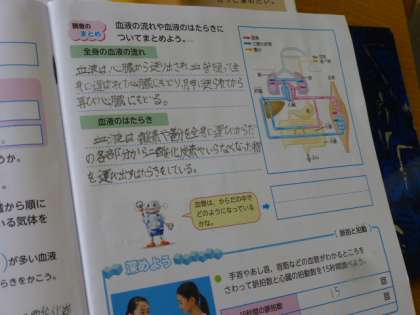 調査の
まとめ
血液の流れや血液のはたらきに
ついてまとめよう。
全身の血液の流れ
血液は心臓から送り出され、血管を通って全
身に運ばれて心臓にもどり、肺に送られてから
再び心臓にもどる。
血液のはたらき
血液は酸素や養分を全身に運び、からだ
の各部分から二酸化炭素やいらなくなった物
を運び出すはたらきをしている。
血管は、からだの中で
どのようになっている
かな。
脈拍と拍動
深めよう
手首やあし首、首筋などの血管がわかるところを
さわって脈拍数と心臓の拍動数を15秒間調べよう。
15秒間の脈拍数
15
回
回
うか。
から順に
いる気体を
が多い血液
らきをかこう。